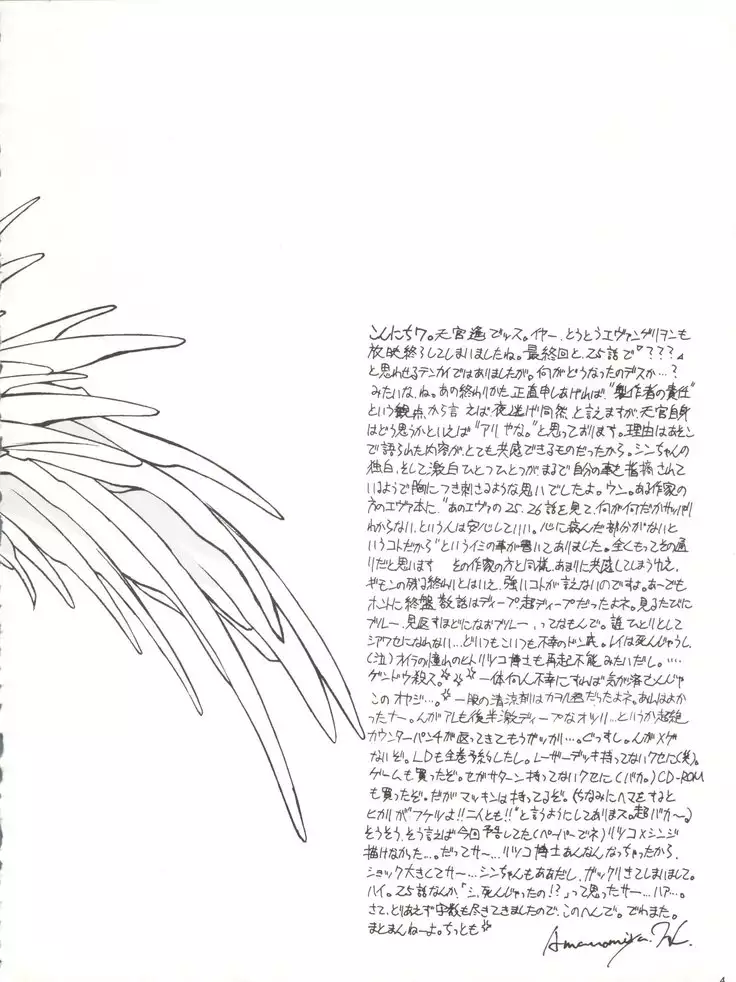 こんにちワ。天宮遥でッス。イヤー、とうとうエヴァンゲリヲンも
放映終了してしまいましたね。最終回と、25話で『???』
と思わせるテンカイではありましたが。何がどうなったのデスか…?
みたいな、ね。あの終わりかた、正直申しあげれば、"製作者の責任"
という観点から言えば夜逃げ同然、と言えますが、天宮自身
はどう思うかといえば"アリやな。"と思っております。理由はあそこ
で語られた内容が、とても共感できるものだったから。シンちゃんの
独白、そして激白ひとつひとつがまるで自分の事を指摘されて
いるようで胸につき刺さるような思いでしたよ。ウン。ある作家の
方のエヴァ本に、"あのエヴァの25、26話を見て、何が何だかサッパリ
わからない、という人は安心していい。心に病んだ部分がないと
いうコトだから"というイミの事が書いてありました。全くもってその通
りだと思います その作家の方と同様、あまりに共感してしまうゆえ、
ギモンの残る終わりとはいえ、強いコトが言えないのですよ。あ〜でも
ホントに終盤数話はディープ超ディープだったよネ。見るたびに
ブルー、見返すほどになおブルー、ってなもんで。誰ひとりとして
シアワセになれない…どいつもこいつも不幸のドン底。レイは死んじゃうし、
(泣)オイラの憧れのヒト、リツコ博士も再起不能みたいだし。…
ゲンドウ殺ス。一体何人不幸にすれば気が済むんじゃ
このオヤジ…。一服の清涼剤はカヲル君だったよネ。あれはよか
ったナー。んがアレも後半激ディープなオツリ…というか超絶
カウンターパンチが返ってきてもうガッカリ…。ぐっすし。んがメゲ
ないぞ。LDも全巻予約したし。レーザーデッキ持ってないクセに(笑)。
ゲームも買ったぞ。セガサターン持ってないクセに(バカ。)CD-ROM
も買ったぞ。だがマッキンは持ってるぞ。(ちなみにヘマをすると
ヒカリが"フケツよ!!二人とも!!"と言うようにしてありまス。超バカ〜。)
そうそう、そう言えば今回予告してた(ペーパーでネ)リツコ×シンジ
描けなかった…。だってサ〜…リツコ博士あんなんなっちゃったから、
ショック大きくてサ〜…シンちゃんもああだし、ガックリきてしまいまして。
ハイ。25話なんか、「シ、死んじゃったの!?」って思ったサー…ハア…。
さて、とりあえず字数も尽きてきましたので、このへんで。でわまた。
まとまんねーよ。ちっとも
Amanomiya.H.
4